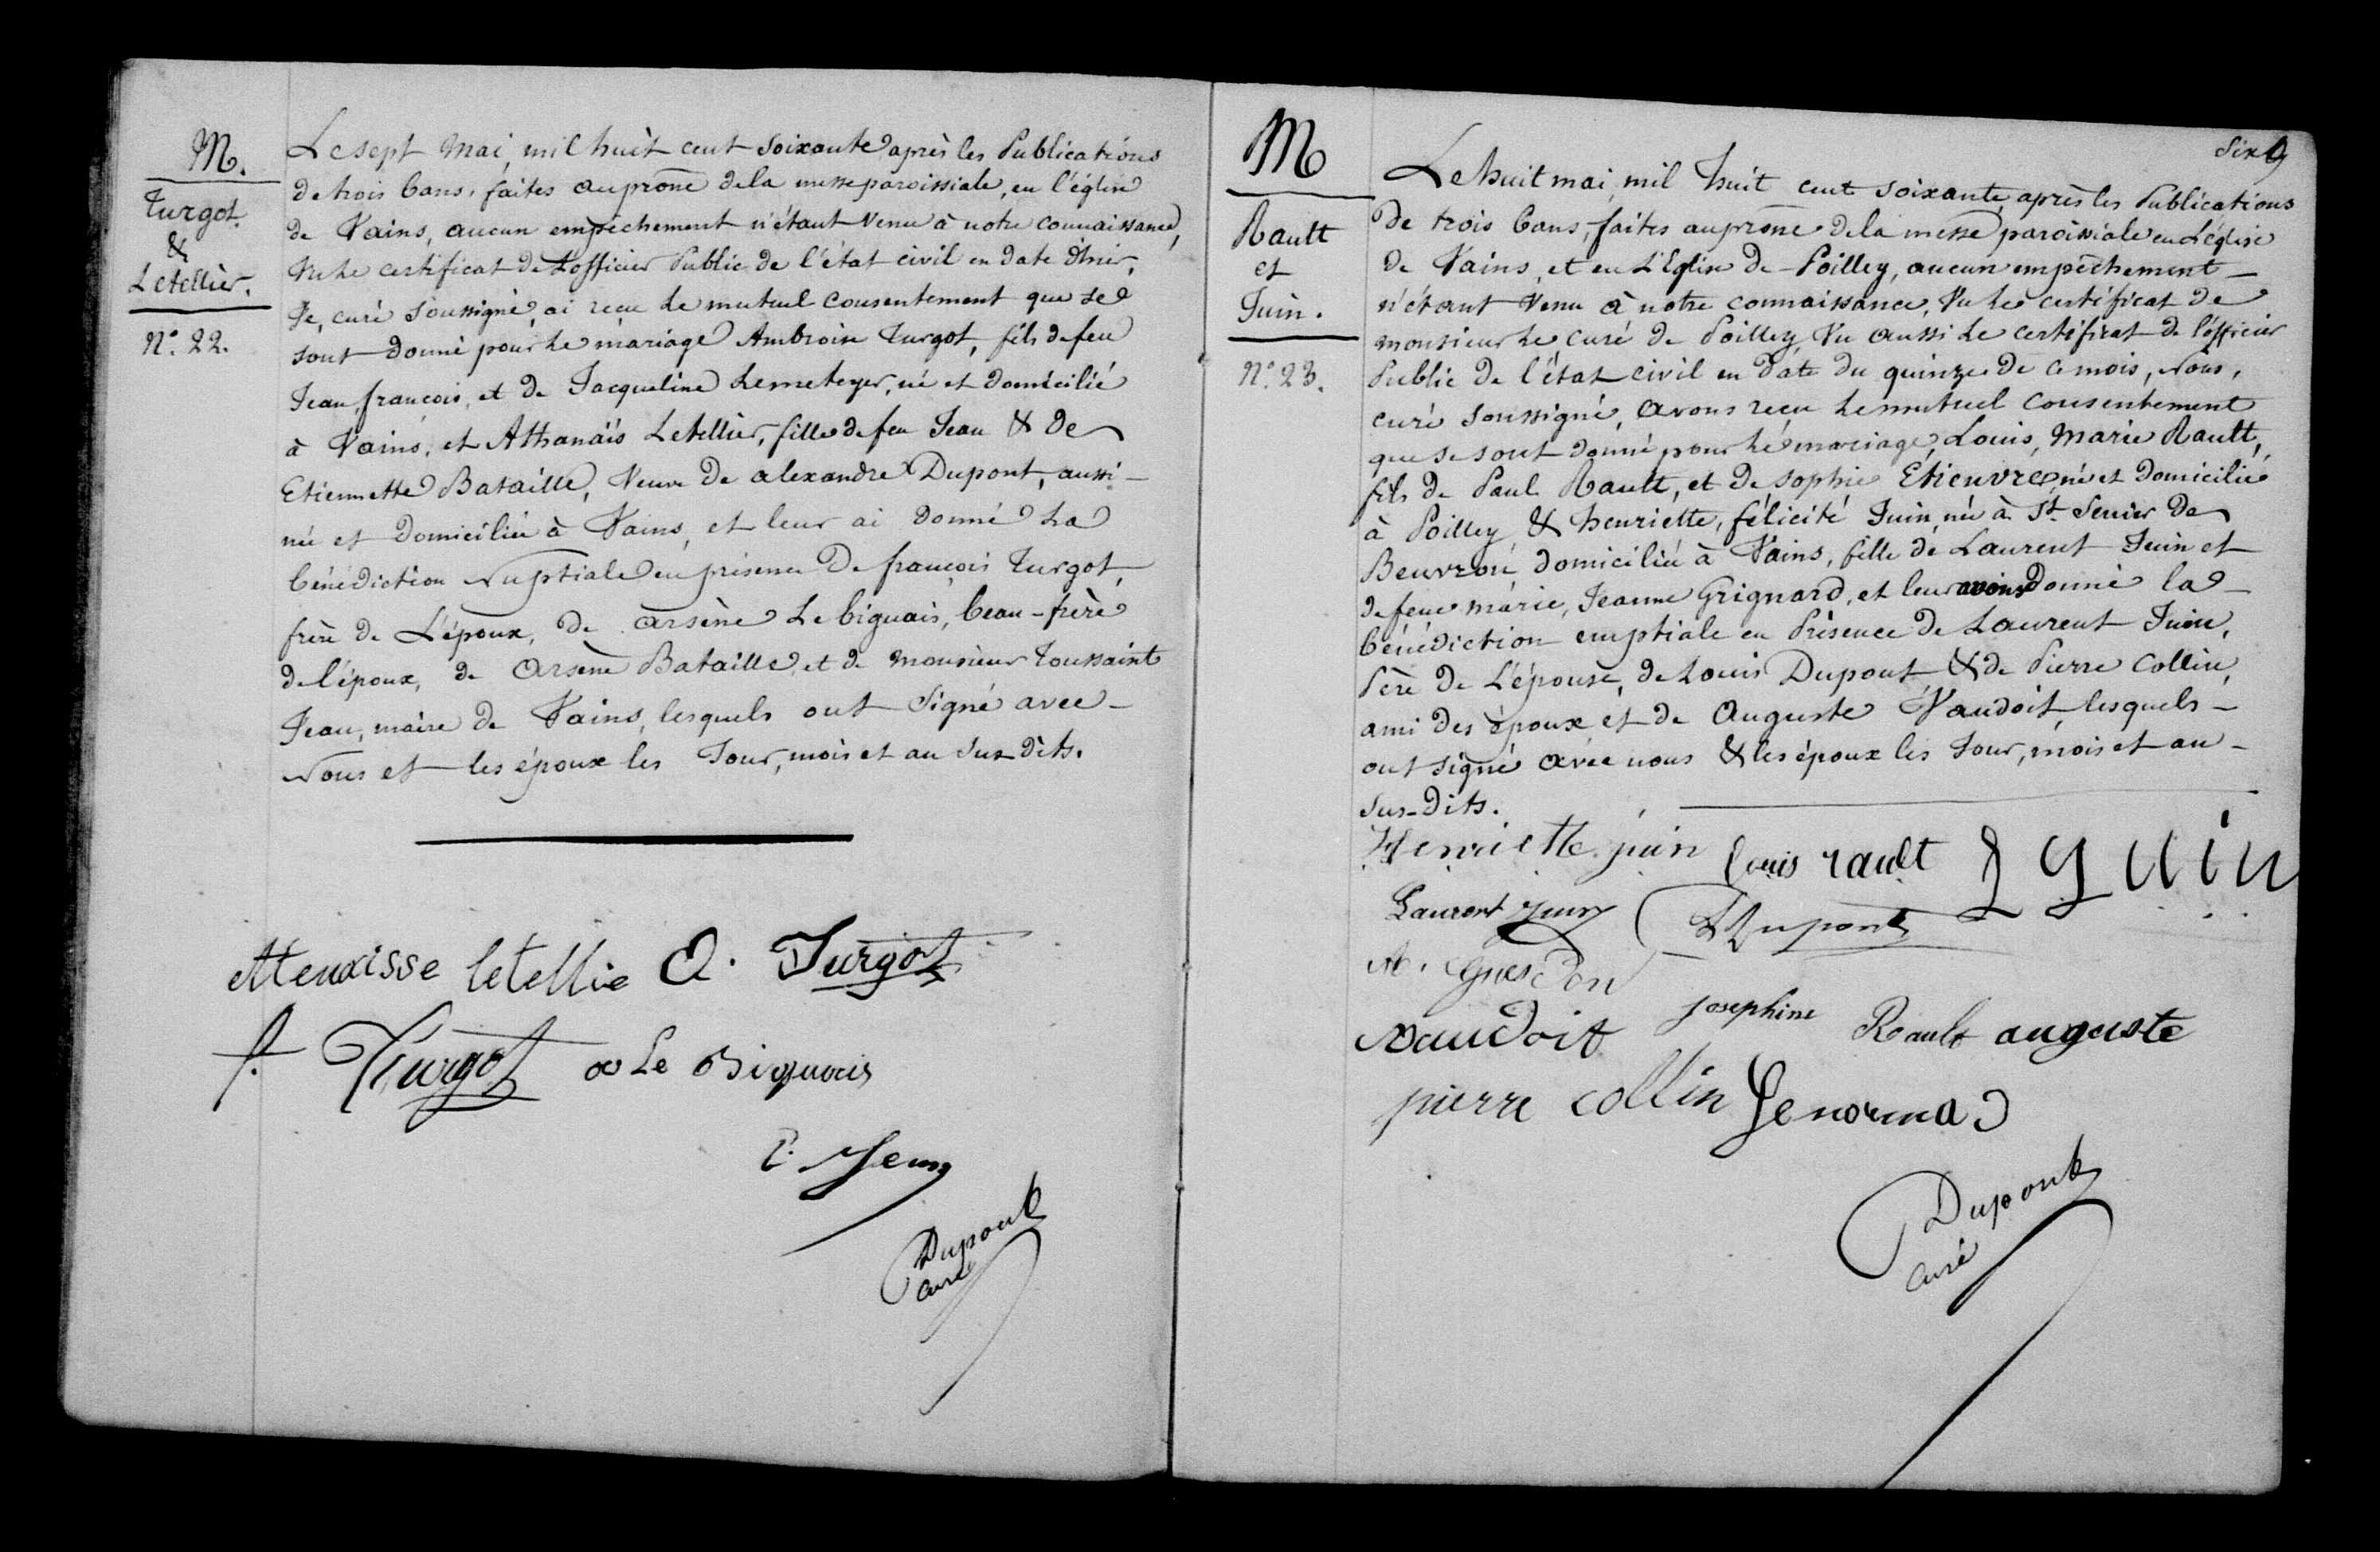 M.
Turgot
&
Letellier.
N.° 22.
Le sept mai, mil huit cent soixante après les Publications
de trois bans, faites au prone de la messe paroissiale, en l'église
de Vains, aucun empêchement n'étant venu à notre connaissance,
Vu le certificat de L'officier Public de l'état civil en date d'hier,
Je, curé soussigné, ai reçu le mutuel consentement que se
sont donné pour le mariage Ambroise Turgot, fils de feu
Jean, françois, et de Jacqueline Lemeteyer, né et domicilié
à Vains, et Athanaïs Letellier, fille de feu Jean & de
Etiennette Bataille, Veuve de alexandre Dupont, aussi -
née et domiciliée à Vains, et leur ai donné la
bénédiction nuptiale en présence de françois Turgot,
frère de L'époux, de arsène Le biguais, beau-frère
de l'époux, de Arsène Bataille, et de monsieur Toussaint
Jean, maire de Vains, lesquels ont signé avec -
Nous et les époux les Jour, mois et an sus dits.
Attenaisse letellie A. Turgot
f. Turgot a Le Biguais
T. Jean
Dupont
curé
Six
M
Rault
et
Juin.
N.° 23.
Le huit mai, mil huit cent soixante, après les Publications
de trois bans, faites au prone de la messe paroissiale en L'église
de Vains, et en L'Eglise de Poilley, aucun empêchement -
n'étant venu à notre connaissance, Vu le certificat de
monsieur le curé de Poilley, Vu aussi le certificat de l'officier
Public de l'état civil en date du quinze de ce mois, Nous,
curé soussigné, avons reçu le mutuel consentement
que se sont donné pour le mariage, Louis, Marie Rault,
fils de Paul Rault, et de sophie Etienvre, né et domicilié
à Poilley, & henriette, félicité Juin, née à St Senier de
Beuvron, domiciliée à Vains, fille de Laurent Juin et
de feue marie, Jeanne Grignard, et leur avons donné la -
bénédiction nuptiale en Présence de Laurent Juin,
Père de L'épouse, de Louis Dupont, & de Pierre Collin,
ami des époux et de Auguste Vaudoit, lesquels -
ont signé avec nous & les époux les Jour, mois et an -
sus-dits.
Henriette juin louis rault J Juin
Laurent Juin L Dupont
A. Guesdon
vaudoit josephine Rault auguste
pierre collin Lenormad
Dupont
curé